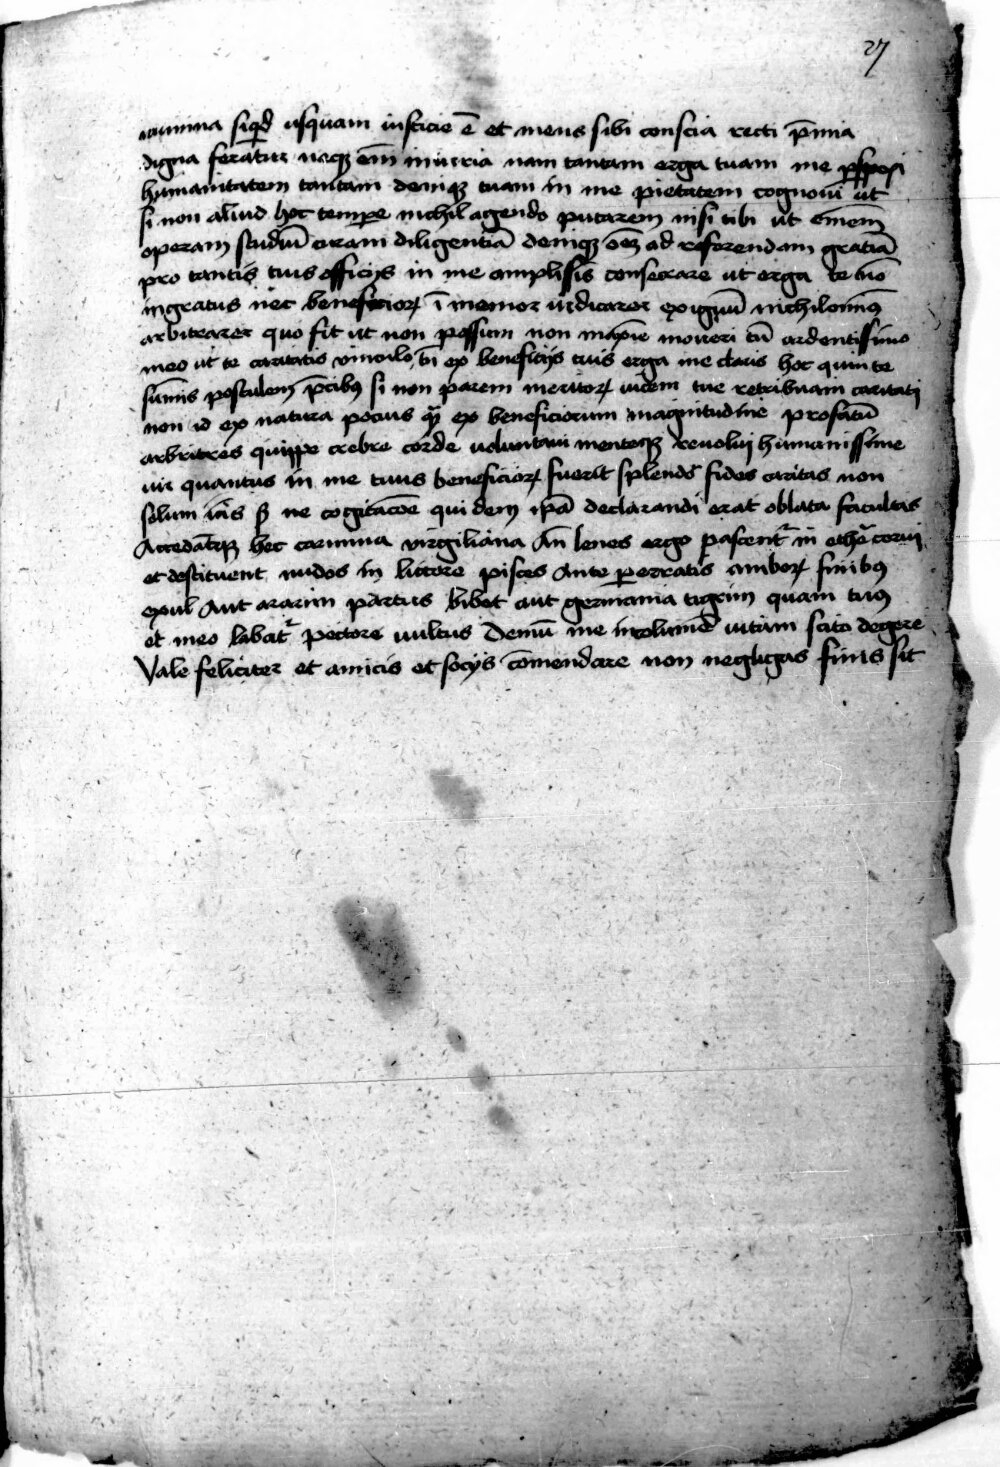 27
numina siquid usquam iusticie ē et mens sibi conscia recti p̄mia
digna feratur neqꝫ em̄ iniuria nam tantam erga tuam me
humanitatem tantam deniqꝫ tuam in me pietatem cognoui ut
si non aliud hoc tempore nichil agendo putarem nisi tibi ut om̄em
operam studiū curam diligentiā deniqꝫ oēꝫ ad referendam gratiā
pro tantis tuis officijs in me amplissis consecrare ut erga te nō
ingratus nec beneficioꝝ ī memor iudicaror exiguū nichilominꝰ
arbitrarer quo fit ut non possum non maxīe moueri tū ardentissimo
meo ut te caritatis vinculo, tū ex beneficijs tuis erga me claris hoc quin te
sūmis postulem p̄cibꝰ si non parem meritoꝝ uicem tue retribuam caritati
non id ex natura pocius qꝫ ex beneficiorum magnitudine profatū
arbritres quippe crebre corde uoluntaui menteqꝫ reuolui humanissime
uir quantus in me tuus beneficioꝝ fuerit splendor fides caritas non
solum īās sꝫ ne cogitacōe quidem ipā declarandi erat oblata facultas
Accedātqꝫ hec carmina virgiliana An̄ leues ergo pascent᷑ in ethē cerui
et destituent nudos in littore pisces Ante pererratis amboꝝ finibꝰ
exul Aut ararim partus bibet aut germania tigrim quam tuus
et meo labat᷑ pectore uultus Demū me incolumē uitam scito degere
Vale feliciter et amicis et socijs cōmendare non negligas finis sit